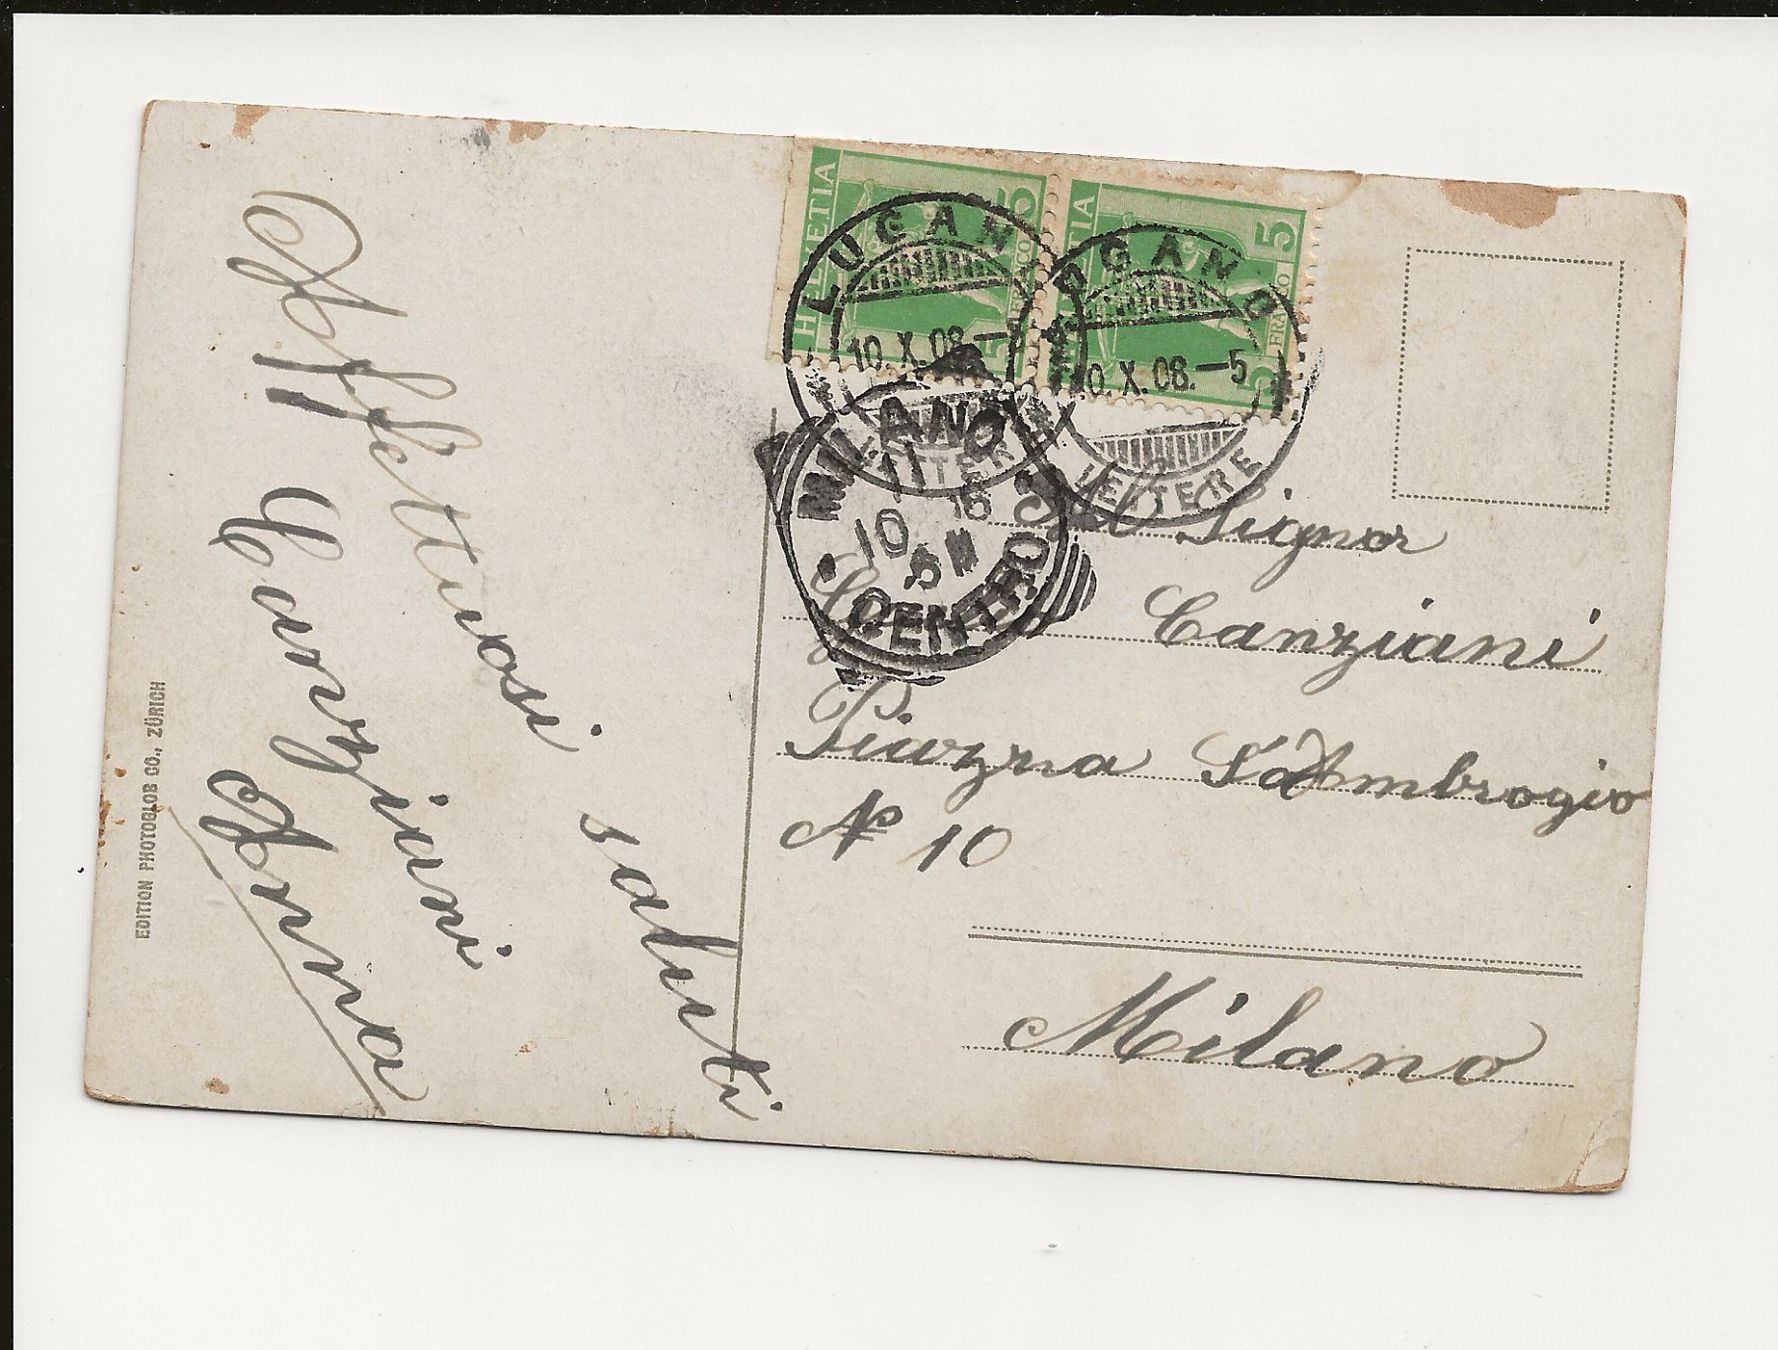 Affettuosi saluti
Canziani
Anna
EDITION PHOTOGLOB CO., ZÜRICH
HELVETIA
5
FRANCO
5
HELVETIA
5
FRANCO
5
LUGANO
10.X.08.-
LETTERE
LUGANO
10.X.08.-5
LETTERE
MILANO
11
10
CENTRO
Signor
Canziani
Piazza S. Ambrogio
N° 10
Milano